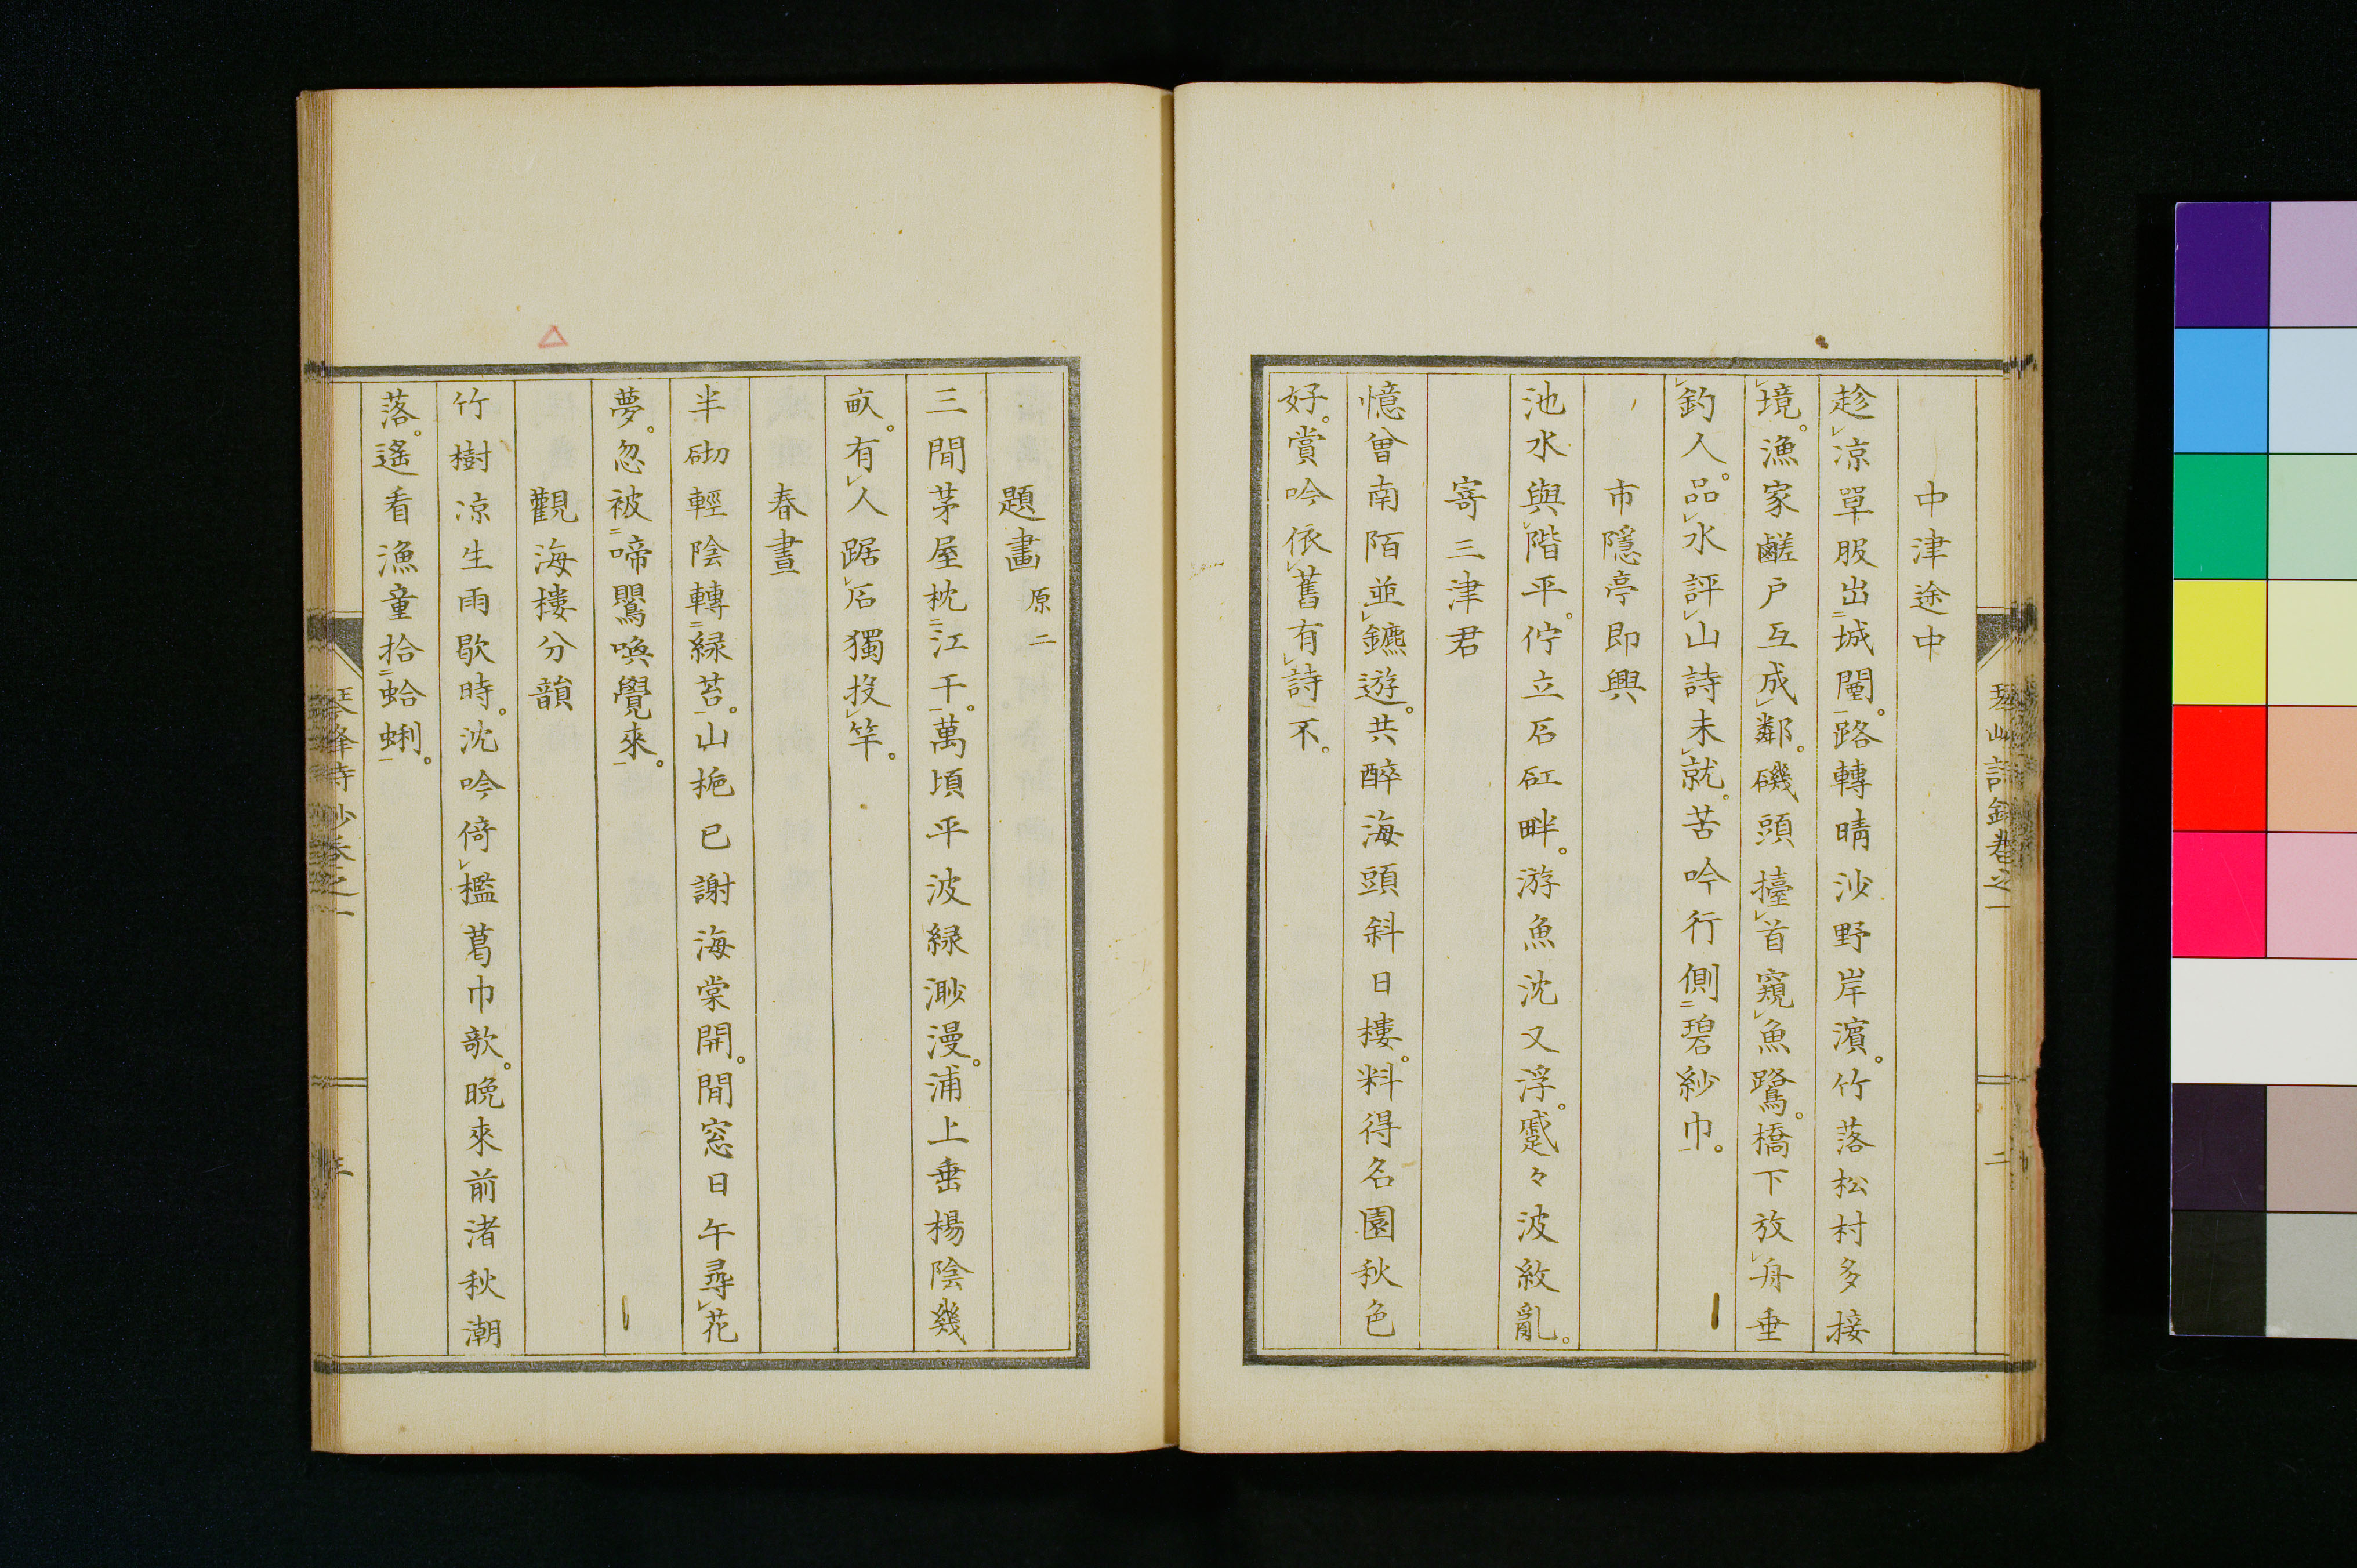 中津途中
趁涼單服出城闉。路轉晴沙野岸濱。竹落松村多接
境。漁家鹺戶互成鄰。磯頭擡首窺魚鷺。橋下放舟垂
釣人。品水評山詩未就。苦吟行側碧紗巾。
市隱亭即興
池水與階平。佇立石矼畔。游魚沈又浮。蹙々波紋亂。
寄三津君
憶曾南陌並鑣遊。共醉海頭斜日樓。料得名園秋色
好。賞吟依舊有詩不。
題畫 原二
三間茅屋枕江干。萬頃平波緑渺漫。浦上垂楊陰幾
畝。有人踞石獨投竿。
春晝
半砌輕陰轉緑苔。山梔已謝海棠開。閒窓日午尋花
夢。忽被啼鸎喚覺來。
觀海樓分韻
竹樹涼生雨歇時。沈吟倚檻葛巾欹。晩來前渚秋潮
落。遙看漁童拾蛤蜊。